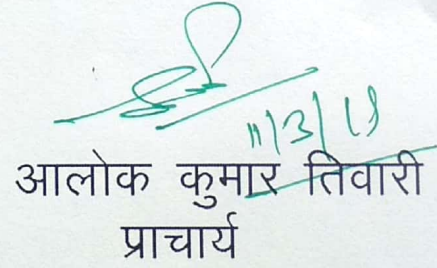 11/3/19
आलोक कुमार तिवारी
प्राचार्य